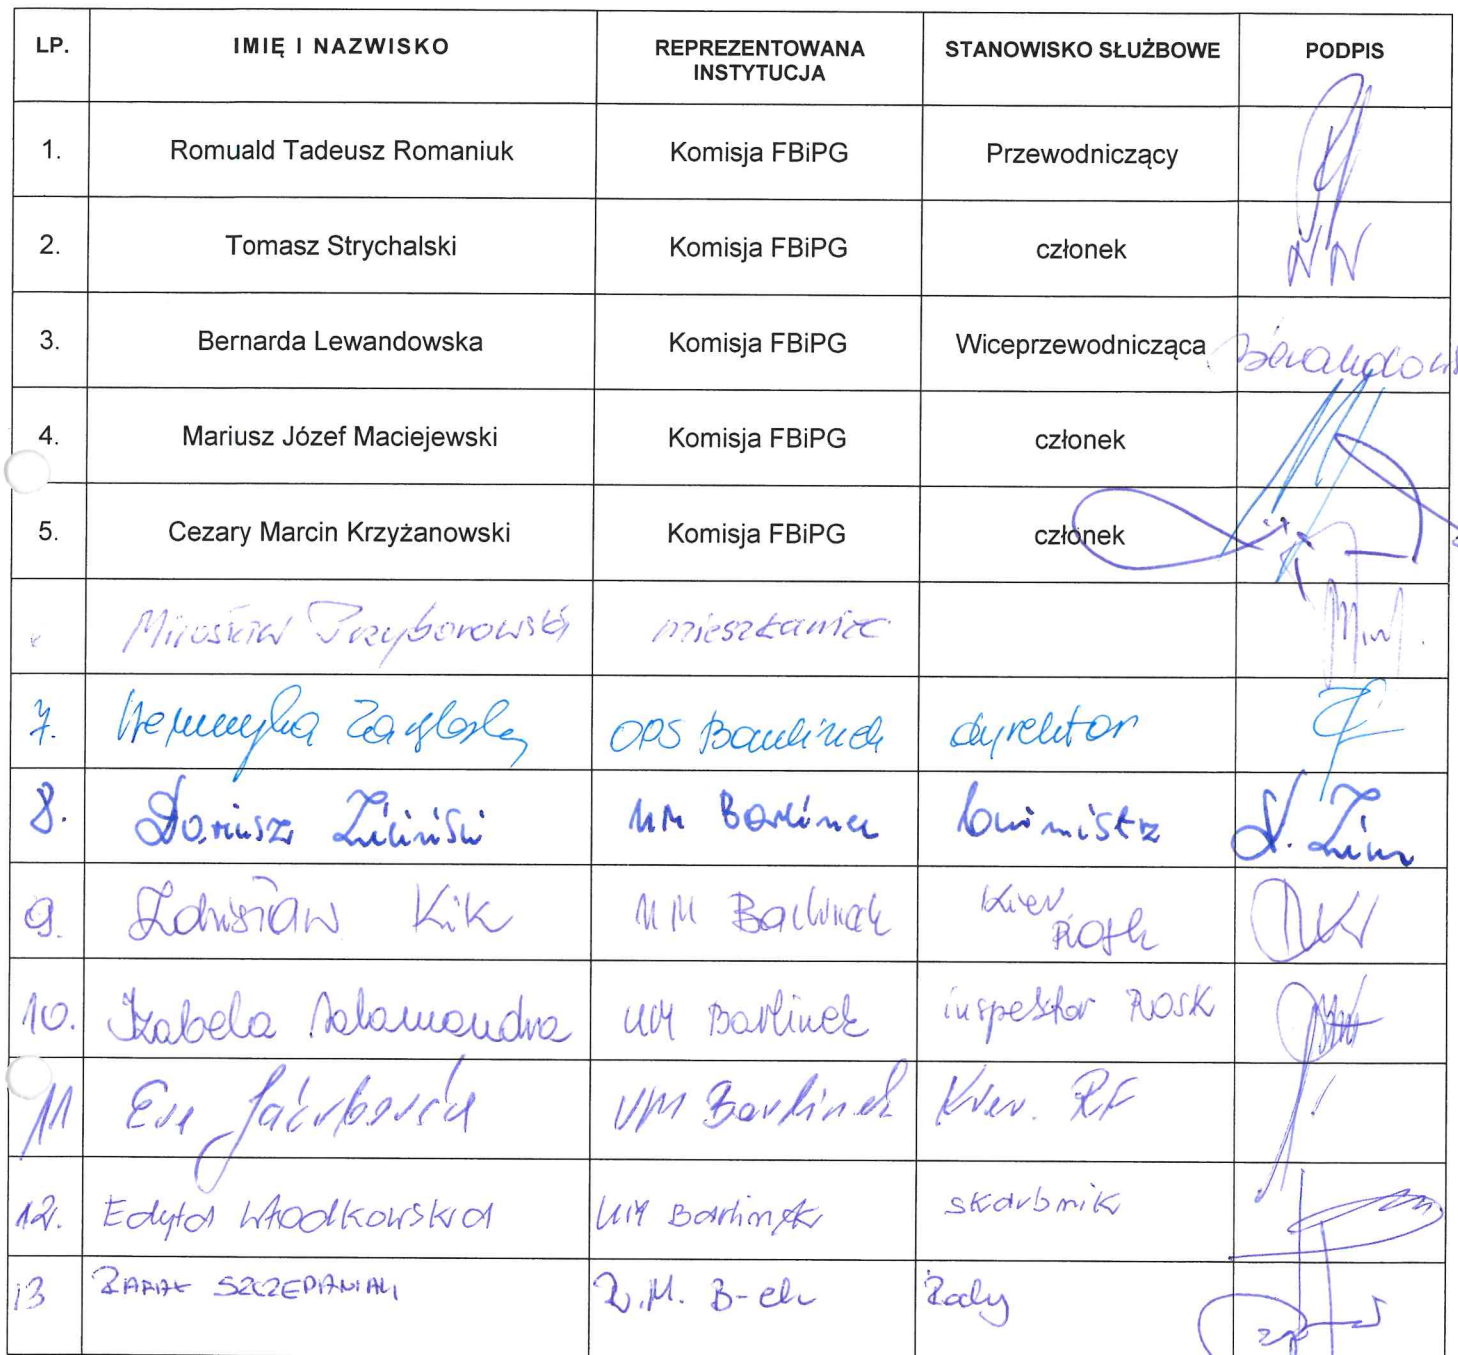 LP. IMIĘ I NAZWISKO REPREZENTOWANA INSTYTUCJA STANOWISKO SŁUŻBOWE PODPIS
1. Romuald Tadeusz Romaniuk Komisja FBiPG Przewodniczący
2. Tomasz Strychalski Komisja FBiPG członek
3. Bernarda Lewandowska Komisja FBiPG Wiceprzewodnicząca
4. Mariusz Józef Maciejewski Komisja FBiPG członek
5. Cezary Marcin Krzyżanowski Komisja FBiPG członek
Mirosław Przyborowski mieszkaniec
7. OPS Barlinek dyrektor
8. Dariusz Zieliński UM Barlinek burmistrz D. Zieliń
9. Zdzisław Kik UM Barlinek Kier
10. Izabela Salamandra UM Barlinek inspektor
11 Ewa UM Barlinek Kier. RF
12. Edyta Włodkowska UM Barlinek skarbnik
13 SZCZEPANIAK R.M. B-ek Radny